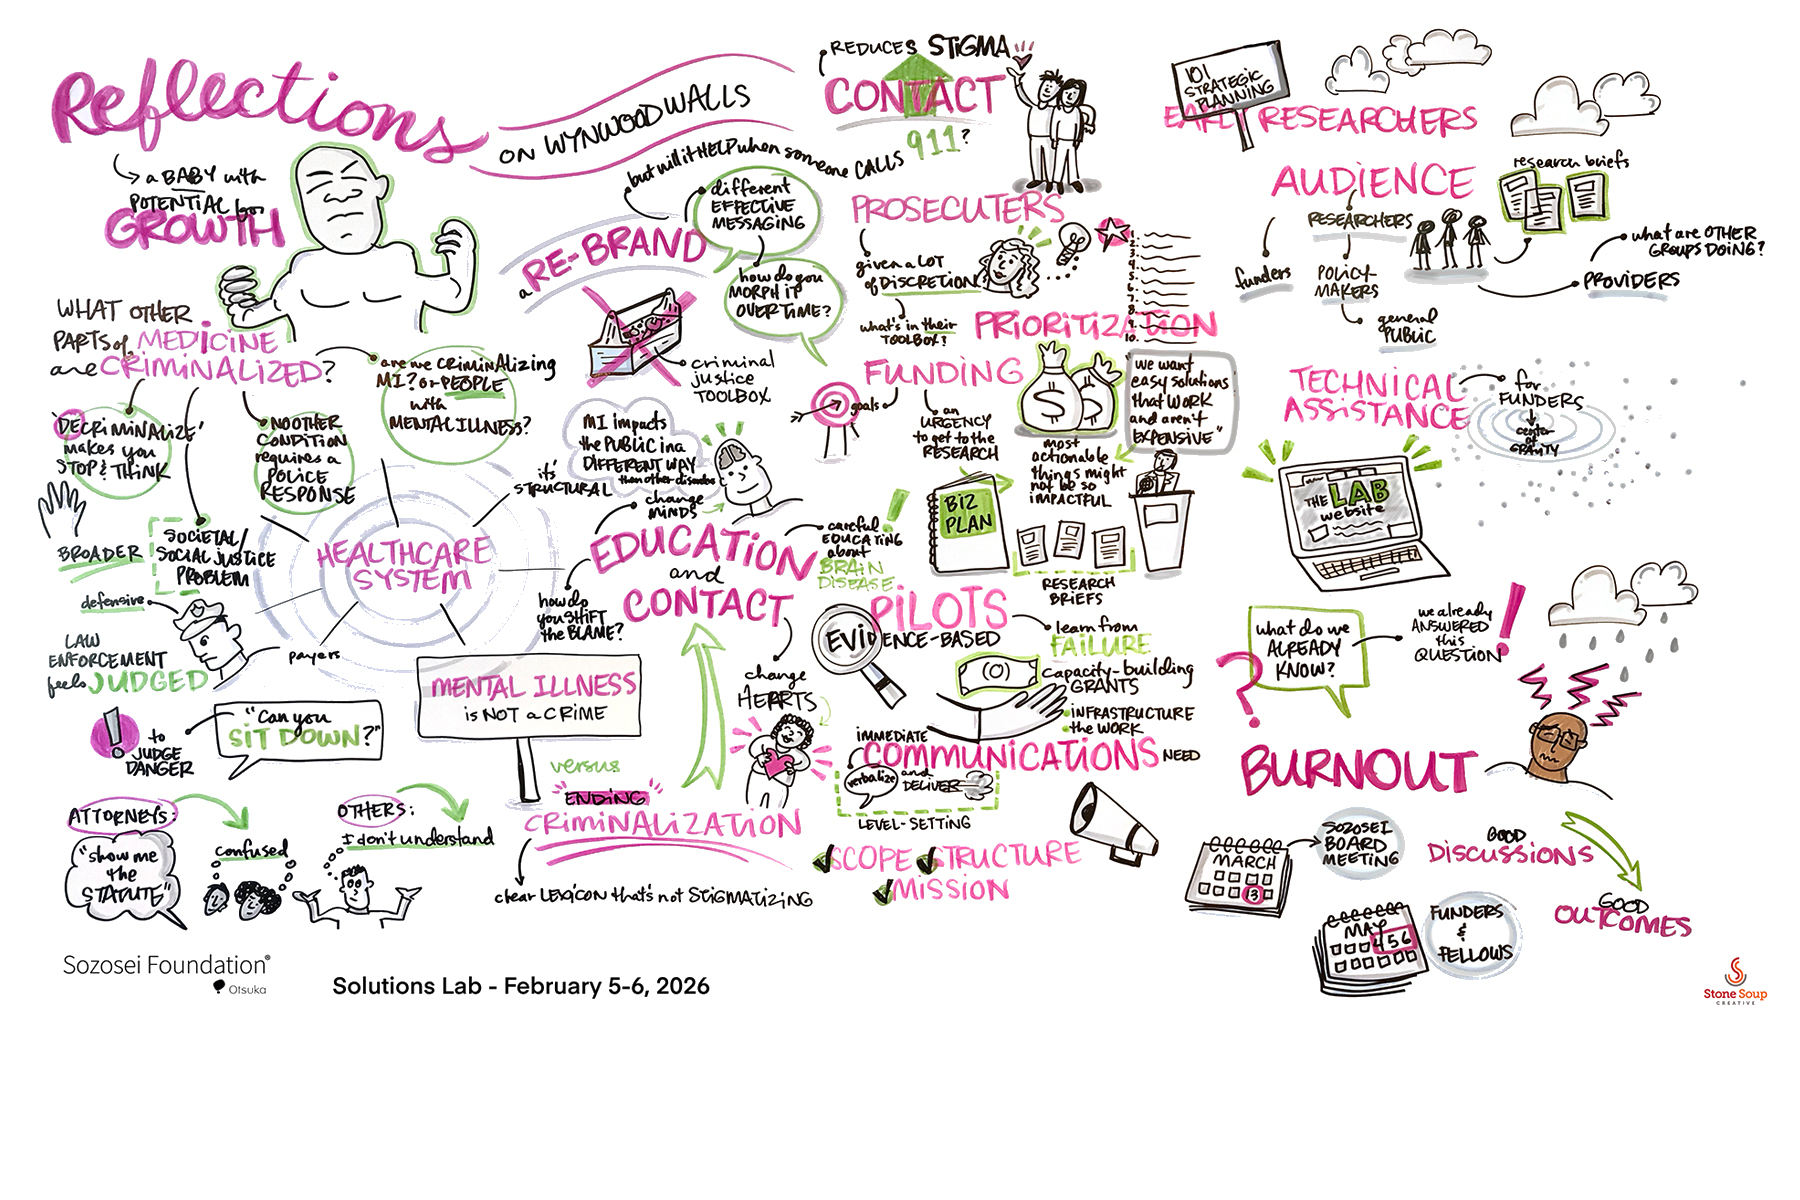 Reflections
ON WYNWOOD WALLS
a BABY with
POTENTIAL for
GROWTH
WHAT OTHER
PARTS of MEDICINE
are CRIMINALIZED?
'DECRIMINALIZE'
makes you
STOP & THINK
NO OTHER
CONDITION
requires a
POLICE
RESPONSE
are we CRIMINALIZING
MI? or PEOPLE
with
MENTAL ILLNESS?
BROADER
SOCIETAL/
SOCIAL JUSTICE
PROBLEM
defensive
LAW
ENFORCEMENT
feels JUDGED
to
JUDGE
DANGER
"Can you
SIT DOWN?"
ATTORNEYS:
"show me
the
STATUTE"
confused
OTHERS:
I don't understand
HEALTHCARE
SYSTEM
payers
it's
STRUCTURAL
MENTAL ILLNESS
is NOT a CRIME
versus
ENDING
CRIMINALIZATION
clear LEXICON that's not STIGMATIZING
REDUCES STIGMA
CONTACT
but will it HELP when someone CALLS
911?
different
EFFECTIVE
MESSAGING
how do you
MORPH IT
OVER TIME?
a RE-BRAND
criminal
justice
TOOLBOX
MI impacts
the PUBLIC in a
DIFFERENT WAY
than other
change
MINDS
EDUCATION
and
CONTACT
careful
EDUCATING
about
BRAIN
DISEASE
how do
you SHIFT
the BLAME?
change
HEARTS
PROSECUTERS
given a LOT
of DISCRETION
what's in their
TOOLBOX?
1.
2.
3.
4.
5.
6.
7.
8.
9.
10.
PRIORITIZATION
FUNDING
goals
an
URGENCY
to get to the
RESEARCH
$ $
"we want
easy solutions
that WORK
and aren't
EXPENSIVE"
most
actionable
things might
not be so
IMPACTFUL
BIZ
PLAN
RESEARCH
BRIEFS
PILOTS
EVIDENCE-BASED
learn from
FAILURE
capacity-building
GRANTS
INFRASTRUCTURE
the WORK
IMMEDIATE
COMMUNICATIONS NEED
verbalize
and
DELIVER
LEVEL-SETTING
SCOPE STRUCTURE
MISSION
101
STRATEGIC
PLANNING
EARLY RESEARCHERS
AUDIENCE
research briefs
RESEARCHERS
funders
POLICY-
MAKERS
general
PUBLIC
what are OTHER
GROUPS DOING?
PROVIDERS
TECHNICAL
ASSISTANCE
for
FUNDERS
center
of
GRAVITY
THE LAB
website
what do we
ALREADY
KNOW?
?
we already
ANSWERED
this
QUESTION!
BURNOUT
MARCH
13
SOZOSEI
BOARD
MEETING
GOOD
DISCUSSIONS
GOOD
OUTCOMES
MAY
4 5 6
FUNDERS
&
FELLOWS
Sozosei Foundation®
Otsuka
Solutions Lab - February 5-6, 2026
Stone Soup
CREATIVE